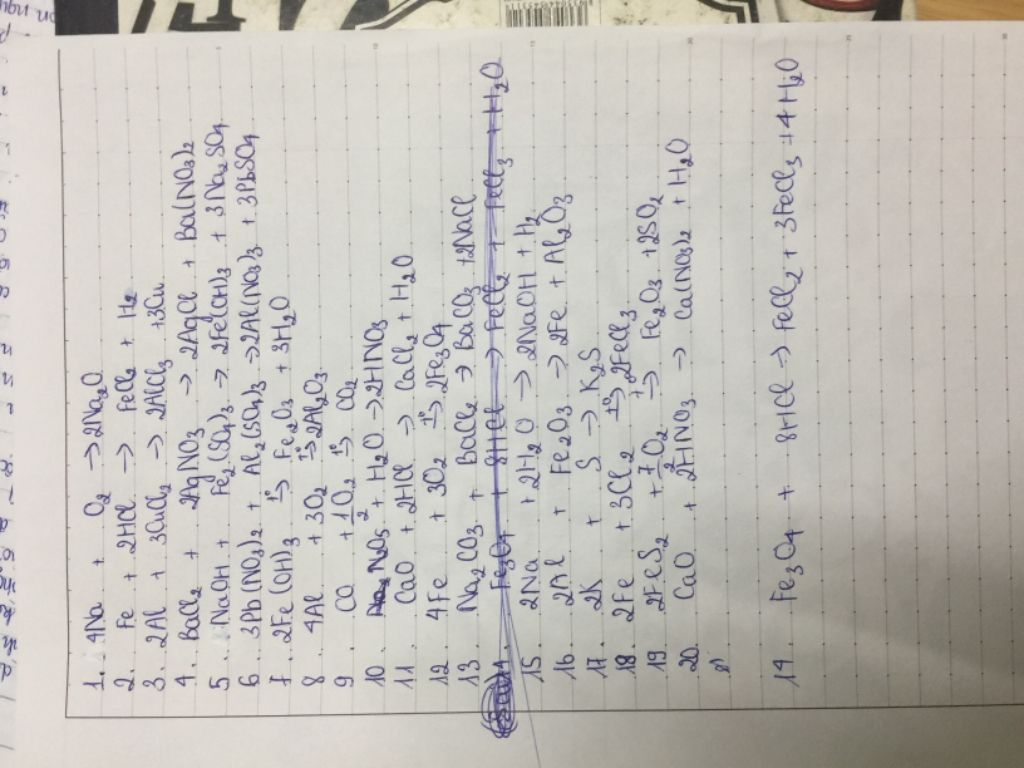 1. 4Na + O₂ → 2Na₂O
2. Fe + 2HCl → FeCl₂ + H₂
3. 2Al + 3CuCl₂ → 2AlCl₃ + 3Cu
4. BaCl₂ + 2AgNO₃ → 2AgCl + Ba(NO₃)₂
5. NaOH + Fe₂(SO₄)₃ → 2Fe(OH)₃ + 3Na₂SO₄
6. 3Pb(NO₃)₂ + Al₂(SO₄)₃ → 2Al(NO₃)₃ + 3PbSO₄
7. 2Fe(OH)₃ t° → Fe₂O₃ + 3H₂O
8. 4Al + 3O₂ t° → 2Al₂O₃
9. CO + 1/2 O₂ t° → CO₂
10. N₂O₅ + H₂O → 2HNO₃
11. CaO + 2HCl → CaCl₂ + H₂O
12. 4Fe + 3O₂ t° → 2Fe₃O₄
13. Na₂CO₃ + BaCl₂ → BaCO₃ + 2NaCl
Fe₃O₄ + 8HCl → FeCl₂ + FeCl₃ + H₂O
15. 2Na + 2H₂O → 2NaOH + H₂
16. 2Al + Fe₂O₃ → 2Fe + Al₂O₃
17. 2K + S → K₂S
18. 2Fe + 3Cl₂ t° → 2FeCl₃
19. 2FeS₂ + 7/2 O₂ t° → Fe₂O₃ + 2SO₂
20. CaO + 2HNO₃ → Ca(NO₃)₂ + H₂O
14. Fe₃O₄ + 8HCl → FeCl₂ + 3FeCl₃ + 4H₂O